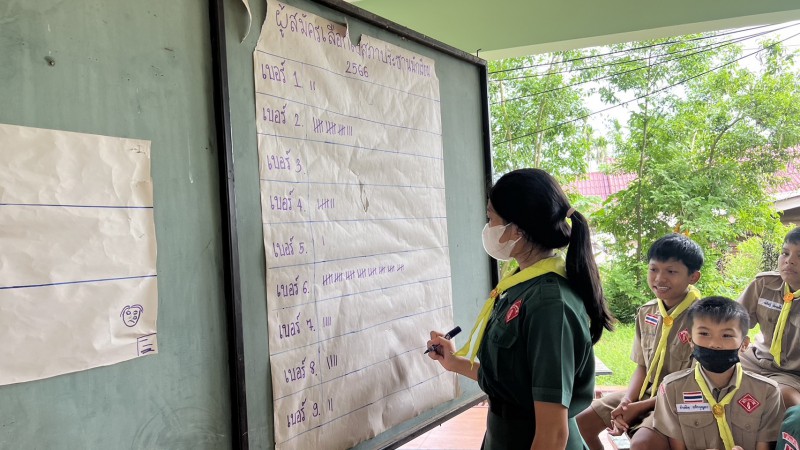 ผู้สมัครเลือกตั้งสภาประธานนักเรียน
2566
เบอร์ 1.
เบอร์ 2.
เบอร์ 3.
เบอร์ 4.
เบอร์ 5.
เบอร์ 6.
เบอร์ 7.
เบอร์ 8.
เบอร์ 9.